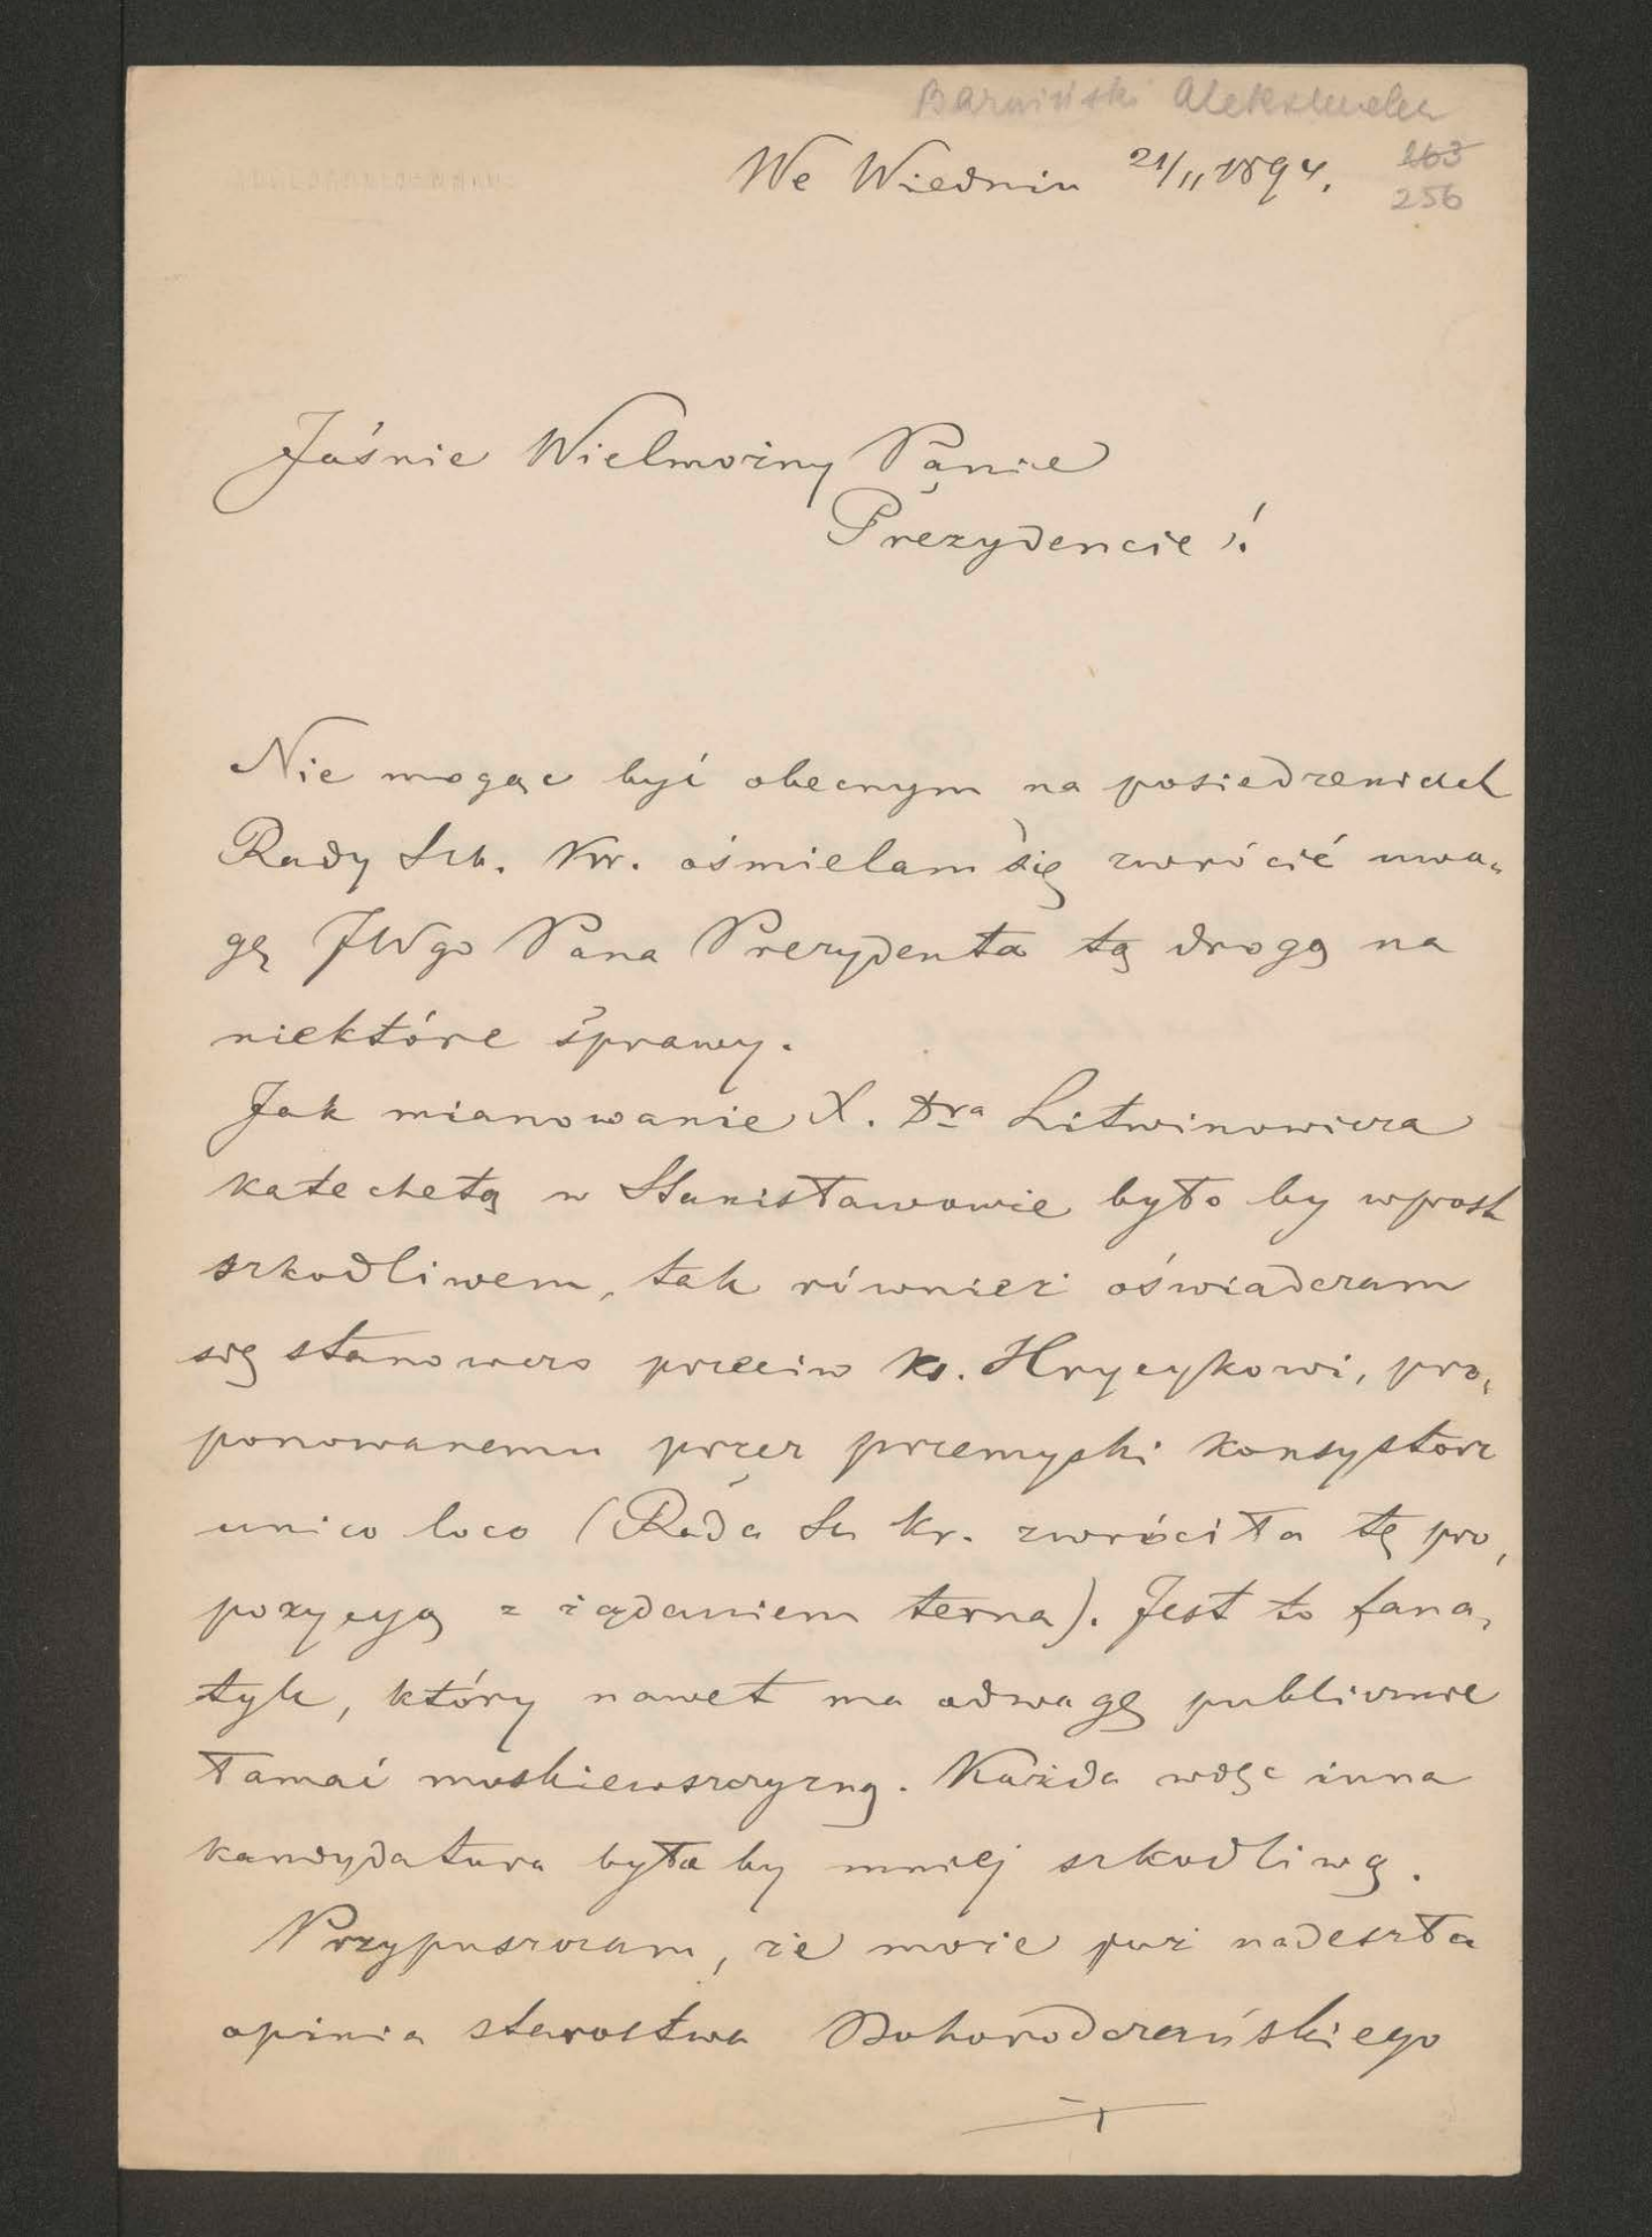 Barwiński Aleksander
We Wiedniu 21/11 1894.
163
256
Jaśnie Wielmożny Panie
Prezydencie!
Nie mogąc być obecnym na posiedzeniach
Rady Szk. Kr. ośmielam się zwrócić uwa„
gę JWgo Pana Prezydenta tą drogą na
niektóre sprawy.
Jak mianowanie X. Dra Litwinowicza
katechetą w Stanisławowie było by wprost
szkodliwem, tak również oświadczam
się stanowczo przeciw ks. Hrycykowi, pro„
ponowanemu przez przemyski konsystorz
unico loco (Rada Sz kr. zwróciła tę pro„
pozycyą z żądaniem terna). Jest to fana„
tyk, który nawet ma odwagę publicznie
łamać moskiewszczyzną. Każda więc inna
kandydatura była by mniej szkodliwą.
Przypuszczam, że może już nadeszła
opinia starostwa Bohorodczańskiego